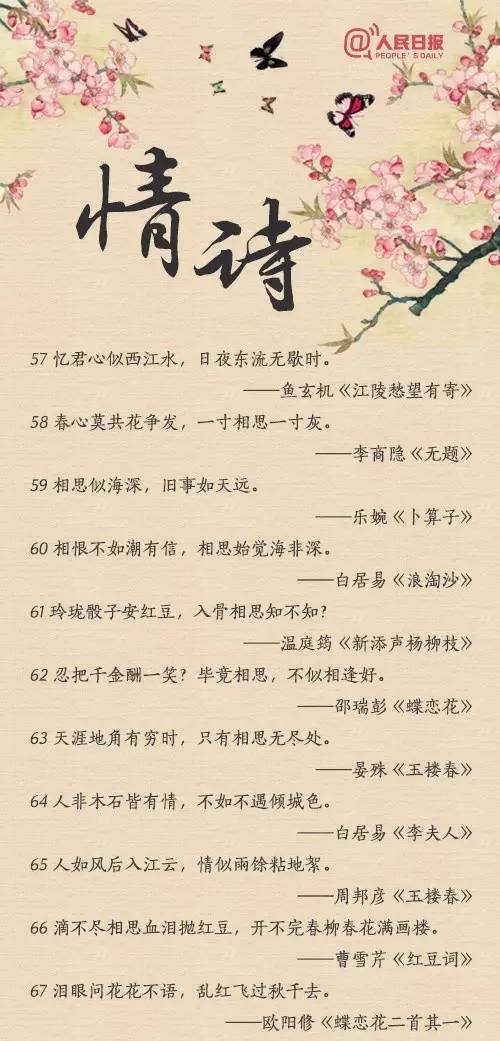 @人民日报
PEOPLE'S DAILY
情诗
57 忆君心似西江水，日夜东流无歇时。
——鱼玄机《江陵愁望有寄》
58 春心莫共花争发，一寸相思一寸灰。
——李商隐《无题》
59 相思似海深，旧事如天远。
——乐婉《卜算子》
60 相恨不如潮有信，相思始觉海非深。
——白居易《浪淘沙》
61 玲珑骰子安红豆，入骨相思知不知？
——温庭筠《新添声杨柳枝》
62 忍把千金酬一笑？毕竟相思，不似相逢好。
——邵瑞彭《蝶恋花》
63 天涯地角有穷时，只有相思无尽处。
——晏殊《玉楼春》
64 人非木石皆有情，不如不遇倾城色。
——白居易《李夫人》
65 人如风后入江云，情似雨馀粘地絮。
——周邦彦《玉楼春》
66 滴不尽相思血泪抛红豆，开不完春柳春花满画楼。
——曹雪芹《红豆词》
67 泪眼问花花不语，乱红飞过秋千去。
——欧阳修《蝶恋花二首其一》